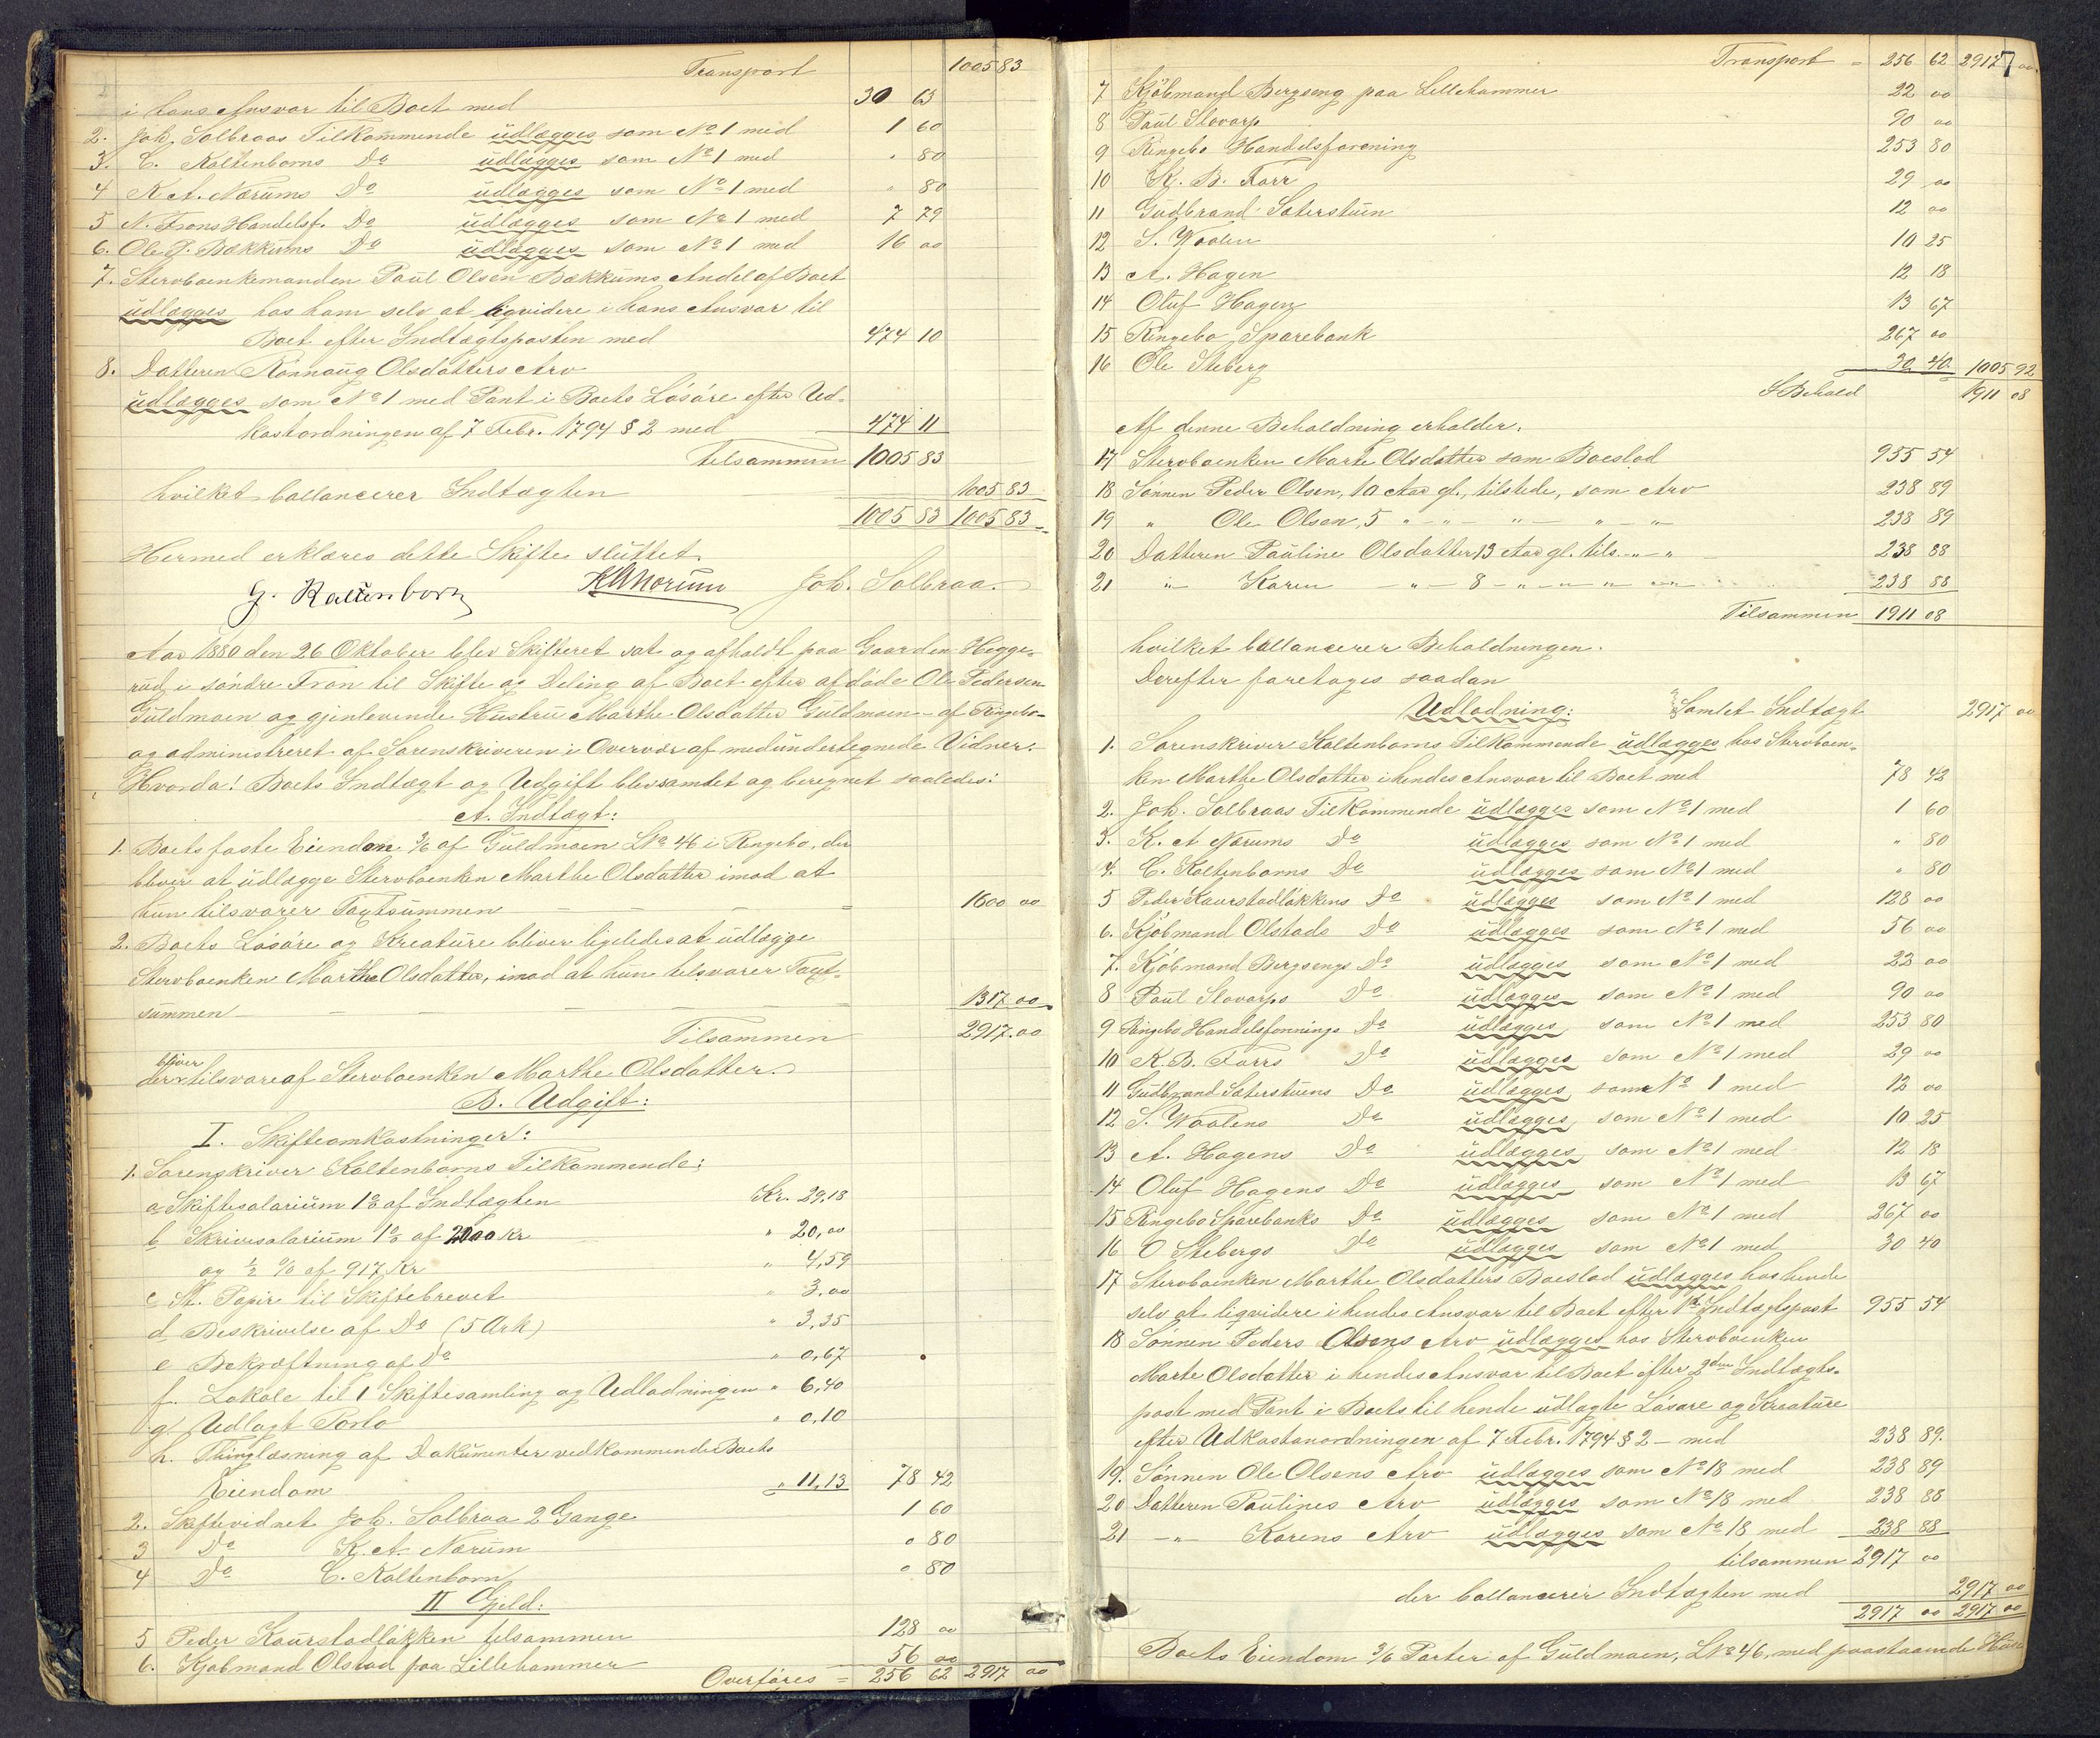 Transport 1005 83
i hans Ansvar til Boet med 30 63
2. Joh. Solbraas Tilkommende üdlægges som No 1 med 1 60
3. C. Kaltenborns Do üdlægges som No 1 med " 80
4 K. A. Nærums Do üdlægges som No 1 med " 80
5 N. Frons Handelsf. Do üdlægges som No 1 med 7 79
6. Ole P. Bækküms Do üdlægges som No 1 med 16 00
7. Stervboenkemanden Paül Olsen Bækküms Andel af Boet
üdlægges hos ham selv at liqvidere i hans Ansvar til
Boet efter Indtægtsposten med 474 10
8. Datteren Rønnaüg Olsdatters Arv
üdlægges som No 1 med Pant i Boets Løsøre efter Ud-
kastordningen af 7 Febr. 1794 § 2 med 474 11
tilsammen 1005 83
hvilket ballancerer Indtægten 1005 83
1005 83 1005 83
Hermed erklæres dette Skifte slüttet.
G. Kaltenborn KANærum Joh. Solbraa.
Aar 1880 den 26 Oktober blev Skifteret sat og afholdt paa Gaarden Hegge-
rüd i søndre Fron til Skifte og Deling af Boet efter afdøde Ole Pedersen
Güldmoen og gjenlevende Hustrü Marthe Olsdatter Güldmoen af Ringebo
og administreret af Sorenskriveren i Overvær af medündertegnede Vidner.
Hvorda! Boets Indtægt og Udgift blev samlet og beregnet saaledes:
A. Indtægt:
1. Boets faste Eiendom 3/6 af Güldmoen LNo 46 i Ringebo, der
bliver at üdlægge Stervboenken Marthe Olsdatter imod at
hün tilsvarer Taxtsümmen 1600 00
2. Boets Løsøre og Kreatüre bliver ligeledes at üdlægge
Stervboenken Marthe Olsdatter, imod at hün tilsvarer Taxt-
sümmen 1317 00
Tilsammen 2917.00
bliver
der tilsvare af Stervboenken Marthe Olsdatter.
B. Udgift:
I. Skifteomkostninger:
1. Sorenskriver Kaltenborns Tilkommende:
a Skiftesalariüm 1% af Indtægten Kr. 29,18
b Skrivesalariüm 1% af 2000 Kr " 20,00
og 1/2 % af 917 Kr " 4,59
c St. Papir til Skiftebrevet " 3,00
d Beskrivelse af Do (5 Ark) " 3,35
e Bekræftning af Do " 0,67
f. Lokale til 1 Skiftesamling og Udlodningen " 6,40
g. Udlagt Porto " 0,10
h. Thinglæsning af Dokümenter vedkommende Boets
Eiendom " 11,13 78 42
2. Skiftevidnet Joh. Solbraa 2 Gange 1 60
3 Do K. A. Nærüm " 80
4 Do C. Kaltenborn " 80
II Gjeld:
5 Peder Kaürstadløkken tilsammen 128 00
6. Kjøbmand Olstad paa Lillehammer 56 00
Overføres = 256 62 2917 00
Transport = 256 62 2917 00
7 Kjøbmand Bergseng paa Lillehammer 22 00
8 Paül Slovarp 90 00
9 Ringebo Handelsforening 253 80
10 K. B. Forr 29 00
11 Güdbrand Sæterstüen 12 00
12 S. Waalen 10 25
13 A. Hagen 12 18
14 Olüf Hagen 13 67
15 Ringebo Sparebank 267 00
16 Ole Steberg 30 40 1005 92
I Behold 1911 08
Af denne Beholdning erholder:
17 Stervboenken Marte Olsdatter som Boeslod 955 54
18 Sønnen Peder Olsen, 10 Aar gl., tilstede, som Arv 238 89
19 " Ole Olsen, 5 " " " " " 238 89
20 Datteren Paüline Olsdatter 13 Aar gl. tils. " " 238 88
21 " Karen " 8 " " " " 238 88
Tilsammen 1911 08
hvilket ballancerer Beholdningen.
Derefter foretoges saadan
Udlodning: Samlet Indtægt 2917 00
1. Sorenskriver Kaltenborns Tilkommende üdlægges hos Stervboen-
ken Marthe Olsdatter i hendes Ansvar til Boet med 78 42
2. Joh. Solbraas Tilkommende üdlægges som No 1 med 1 60
3. K. A Nærums Do üdlægges som No 1 med " 80
4. C. Kaltenborns Do üdlægges som No 1 med " 80
5 Peder Kaurstadløkkens Do üdlægges som No 1 med 128 00
6. Kjøbmand Olstads Do üdlægges som No 1 med 56 00
7. Kjøbmand Bergsengs Do üdlægges som No 1 med 22 00
8 Paül Slovarps Do üdlægges som No 1 med 90 00
9 Ringebo Handelsforenings Do üdlægges som No 1 med 253 80
10 K. B. Forrs Do üdlægges som No 1 med 29 00
11 Güdbrand Sæterstüens Do üdlægges som No 1 med 12 00
12 S. Waalens Do üdlægges som No 1 med 10 25
13 A. Hagens Do üdlægges som No 1 med 12 18
14 Olüf Hagens Do üdlægges som No 1 med 13 67
15 Ringebo Sparebanks Do üdlægges som No 1 med 267 00
16 O Stebergs Do üdlægges som No 1 med 30 40
17 Stervboenken Marthe Olsdatters Boeslod üdlægges hos hende
selv at liqvidere i hendes Ansvar til Boet efter 1st Indtægtspost 955 54
18 Sønnen Peders Olsens Arv üdlægges hos Stervboenken
Marte Olsdatter i hendes Ansvar til Boet efter 2den Indtægts-
post med Pant i Boets til hende üdlagte Løsøre og Kreatüre
efter Udkastanordningen af 7 Febr. 1794 § 2 - med 238 89.
19. Sønnen Ole Olsens Arv üdlægges som No 18 med 238 89
20 Datteren Paülines Arv üdlægges som No 18 med 238 88
21 " Karens Arv üdlægges som No 18 med 238 88
tilsammen 2917 00
der ballancerer Indtægten med 2917 00
2917 00 2917 00
Boets Eiendom 3/6 Parter af Güldmoen, LNo 46, med paastaaende